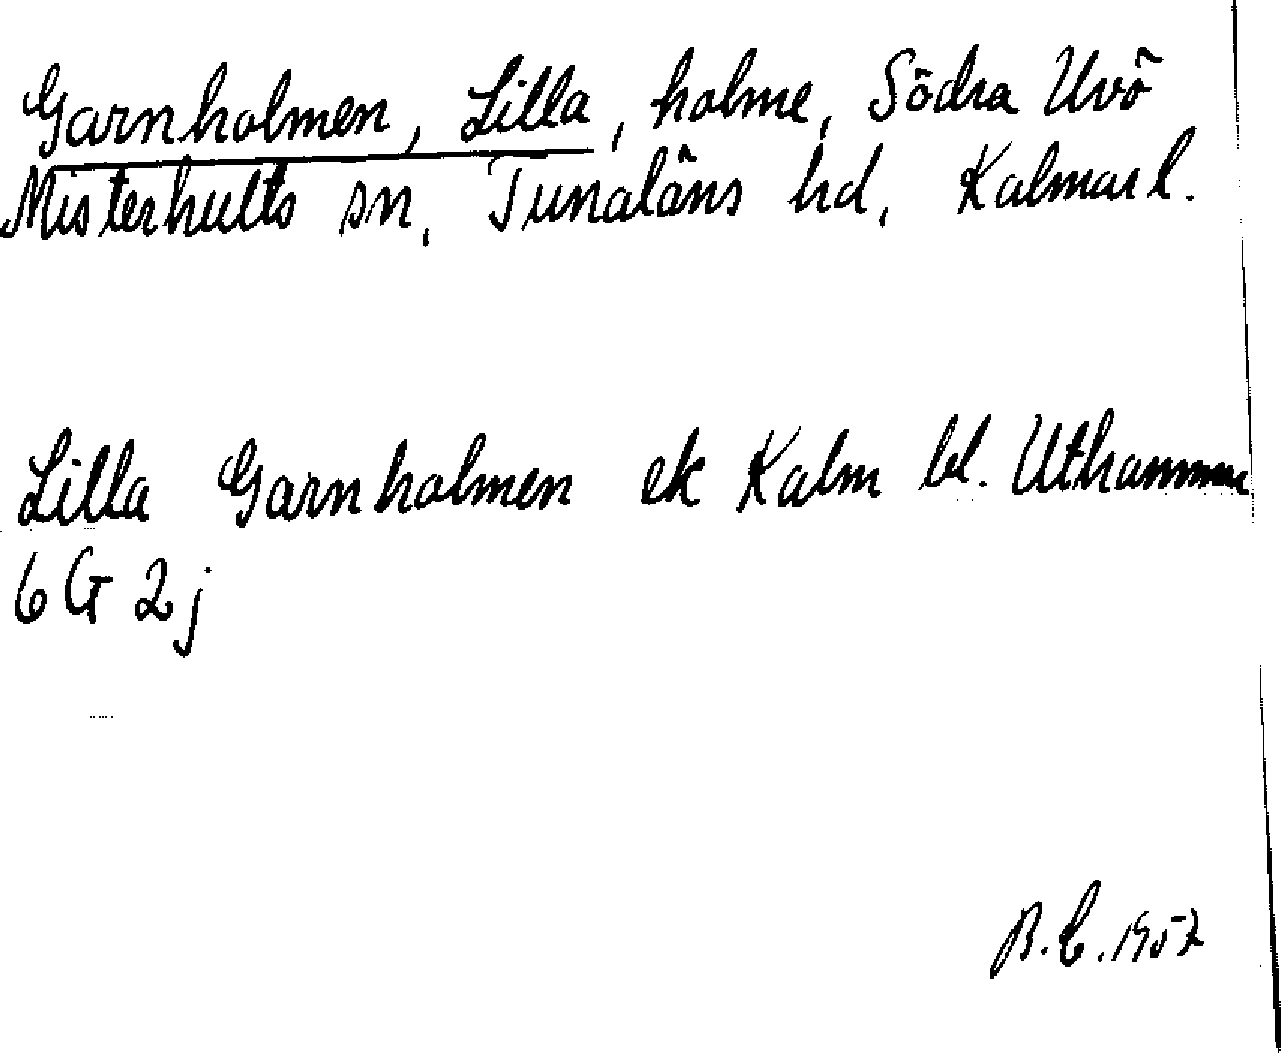 Garnholmen, Lilla, holme, Södra Uvö
Misterhults sn, Tunaläns hd, Kalmar l.
Lilla Garnholmen ek Kalm bl. Uthammar
6 G 2 j
B.E. 1957